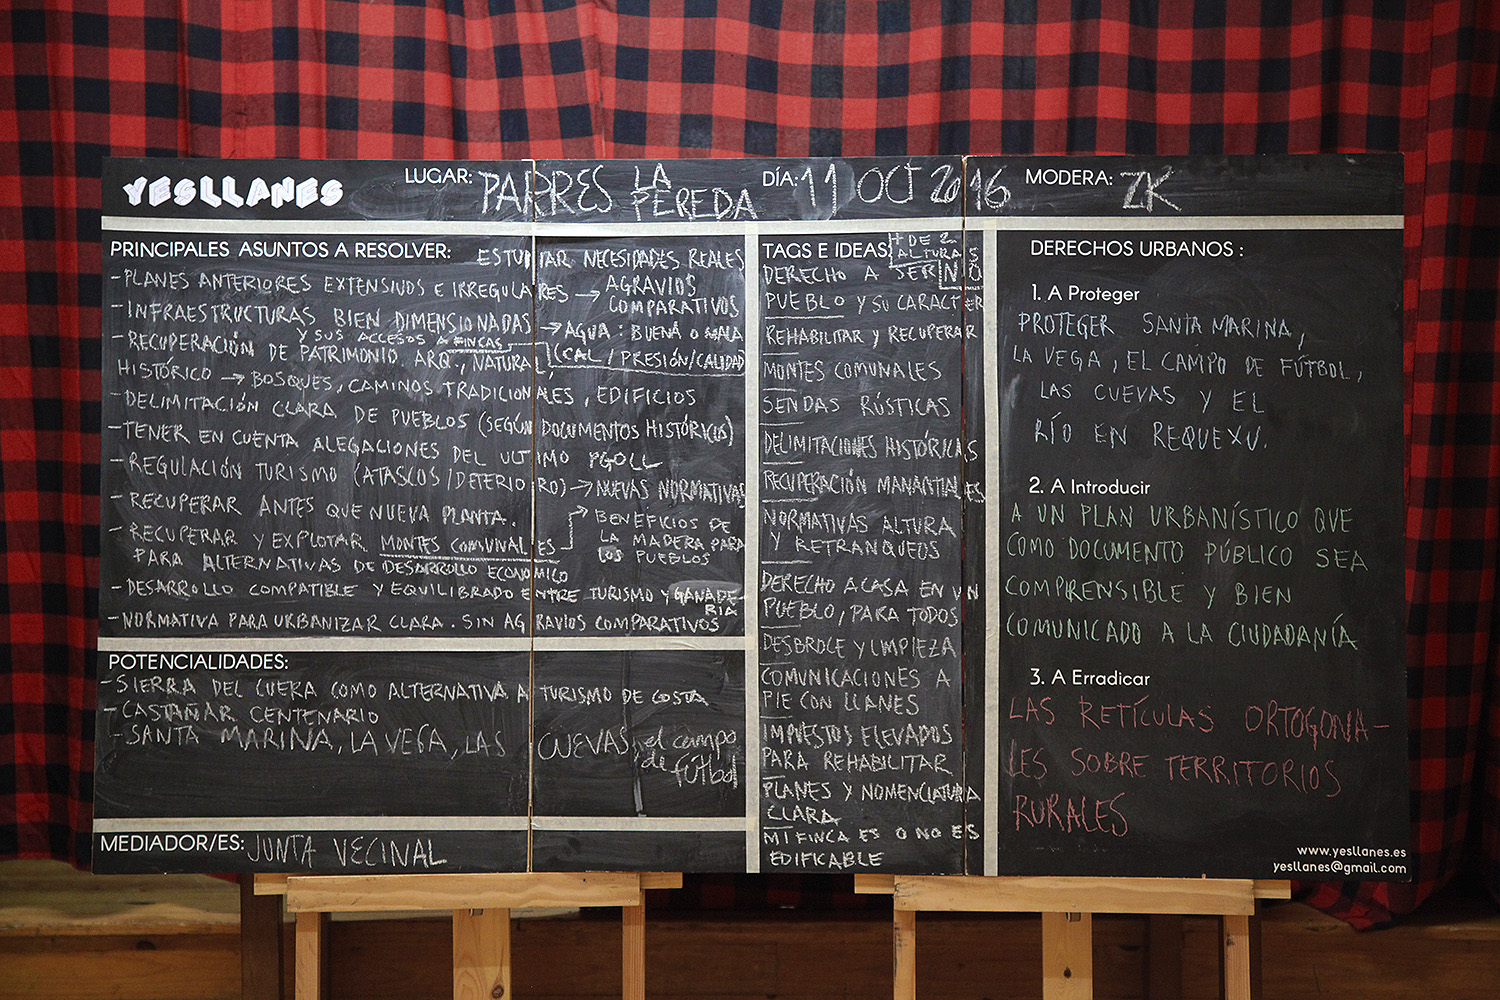 YESLLANES
LUGAR: PARRES LA PEREDA
DÍA: 11 OCT 2016
MODERA: ZK
PRINCIPALES ASUNTOS A RESOLVER: ESTUDIAR NECESIDADES REALES
-PLANES ANTERIORES EXTENSIVOS E IRREGULARES → AGRAVIOS COMPARATIVOS
-INFRAESTRUCTURAS BIEN DIMENSIONADAS → AGUA: BUENA O MALA
Y SUS ACCESOS A FINCAS (CAL/PRESIÓN/CALIDAD
-RECUPERACIÓN DE PATRIMONIO ARQ., NATURAL,
HISTÓRICO → BOSQUES, CAMINOS TRADICIONALES, EDIFICIOS
-DELIMITACIÓN CLARA DE PUEBLOS (SEGÚN DOCUMENTOS HISTÓRICOS)
-TENER EN CUENTA ALEGACIONES DEL ULTIMO PGOLL
-REGULACIÓN TURISMO (ATASCOS/DETERIORO) → NUEVAS NORMATIVAS
-RECUPERAR ANTES QUE NUEVA PLANTA.
-RECUPERAR Y EXPLOTAR MONTES COMUNALES → BENEFICIOS DE
LA MADERA PARA
LOS PUEBLOS
PARA ALTERNATIVAS DE DESARROLLO ECONOMICO
-DESARROLLO COMPATIBLE Y EQUILIBRADO ENTRE TURISMO Y GANADE-
RIA
-NORMATIVA PARA URBANIZAR CLARA. SIN AGRAVIOS COMPARATIVOS
POTENCIALIDADES:
-SIERRA DEL CUERA COMO ALTERNATIVA A TURISMO DE COSTA
-CASTAÑAR CENTENARIO
-SANTA MARINA, LA VEGA, LAS CUEVAS, el campo
de fútbol
MEDIADOR/ES: JUNTA VECINAL
TAGS E IDEAS
+ DE 2
ALTURAS
NO
DERECHO A SER
PUEBLO Y SU CARACTER
REHABILITAR Y RECUPERAR
MONTES COMUNALES
SENDAS RÚSTICAS
DELIMITACIONES HISTÓRICAS
RECUPERACIÓN MANANTIALES
NORMATIVAS ALTURA
Y RETRANQUEOS
DERECHO A CASA EN UN
PUEBLO, PARA TODOS
DESBROCE Y LIMPIEZA
COMUNICACIONES A
PIE CON LLANES
IMPUESTOS ELEVADOS
PARA REHABILITAR
PLANES Y NOMENCLATURA
CLARA
MI FINCA ES O NO ES
EDIFICABLE
DERECHOS URBANOS :
1. A Proteger
PROTEGER SANTA MARINA,
LA VEGA, EL CAMPO DE FÚTBOL,
LAS CUEVAS Y EL
RÍO EN REQUEXU.
2. A Introducir
A UN PLAN URBANÍSTICO QUE
COMO DOCUMENTO PÚBLICO SEA
COMPRENSIBLE Y BIEN
COMUNICADO A LA CIUDADANÍA
3. A Erradicar
LAS RETÍCULAS ORTOGONA-
LES SOBRE TERRITORIOS
RURALES
www.yesllanes.es
yesllanes@gmail.com